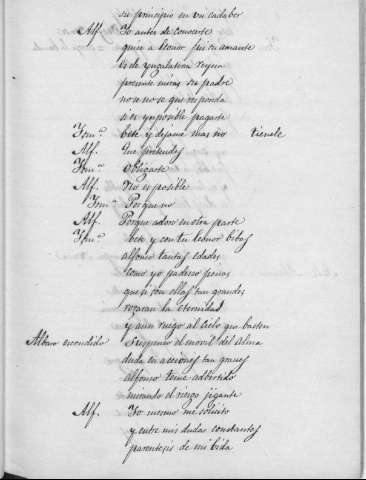 su principio en un cadaber
Alf. Yo antes de conocerte
quise a leonor fui su amante
es de Yngalaterra reyna
presente miras su padre
no se no se que responda
si es ynposible pagarte
Ysmª. bete y dejame mas no tienele
Alf. Que pretendes
Ysmª. obligarte
Alf. No es posible
Ysmª. Porque no
Alf. Porque adoro en otra parte
Ysmª. bete y con tu leonor bibas
alfonso tantas edades
como yo padezco penas
que si con ellas tan grandes
rozaran la eternidad
y aun ruego al cielo que basten
Albaro escondido Suspenso el movil del Alma
duda en acciones tan graves
alfonso teme adbertido
mirando el riesgo jigante
Alf. Yo mesmo me solicito
y entre mis dudas constantes
parentesis de mi bida